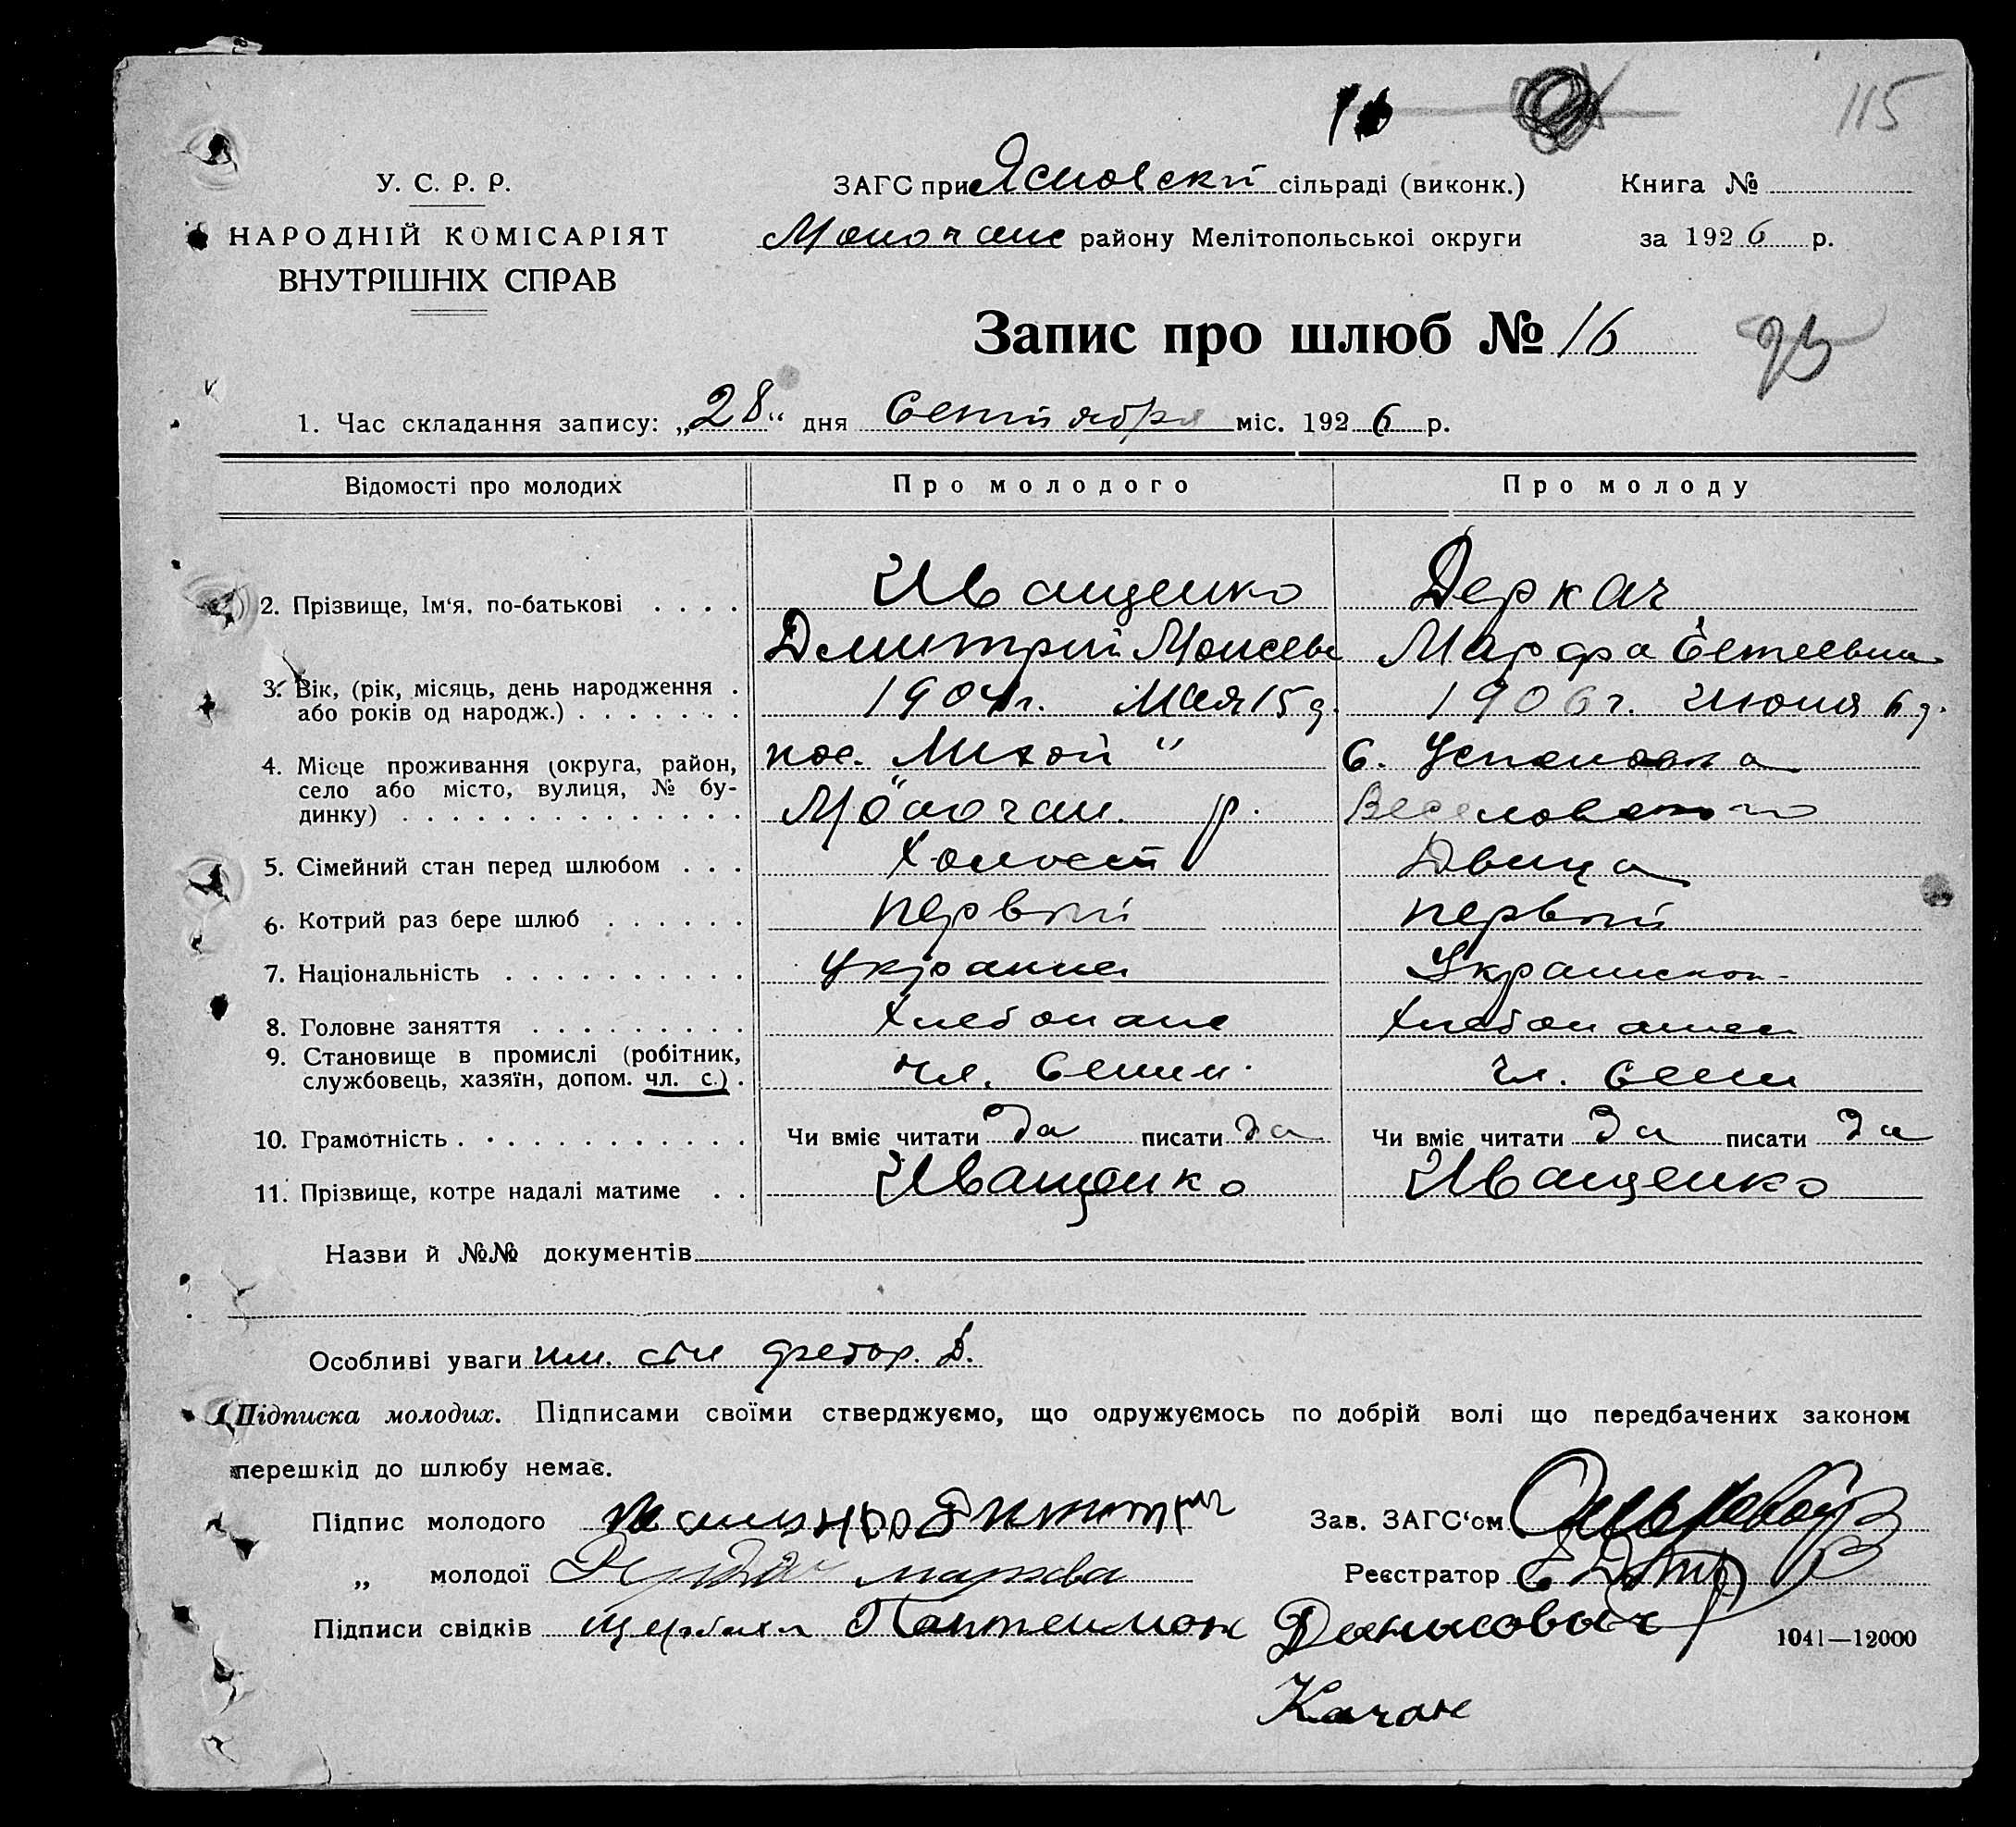 115
У. С. Р. Р.
ЗАГС при Ясновскій сільраді (виконк.)
Книга №
НАРОДНІЙ КОМІСАРІЯТ
Молочанс району Мелітопольської округи
за 1926 р.
ВНУТРІШНІХ СПРАВ
Запис про шлюб № 16
1. Час складання запису: „28" дня Сентября міс. 1926 р.
Відомості про молодих
Про молодого
Про молоду
2. Прізвище, Ім'я, по-батькові
Иващенко
Деркач
Дмитрий Моисеев
Марфа
3. Вік, (рік, місяць, день народження
або років од народж.)
1904 г. Мая 15 д.
1906 г. Июня 6 д.
4. Місце проживання (округа, район,
село або місто, вулиця, № бу-
динку)
пос.
с. Успеновка
Молочан. р.
Веселовского
5. Сімейний стан перед шлюбом
Холост
Двица
6. Котрий раз бере шлюб
первый
первый
7. Національність
8. Головне заняття
9. Становище в промислі (робітник,
службовець, хазяїн, допом. чл. с.)
чл. семьи
чл. семьи
10. Грамотність
Чи вміє читати да писати да
Чи вміє читати да писати да
11. Прізвище, котре надалі матиме
Иващенко
Иващенко
Назви й №№ документів
Особливі уваги
Підписка молодих. Підписами своїми стверджуємо, що одружуємось по добрій волі що передбачених законом
перешкід до шлюбу немає.
Підпис молодого
Зав. ЗАГС'ом
„ молодої
Реєстратор
Підписи свідків Пантелимон Данилович
1041—12000
Качан